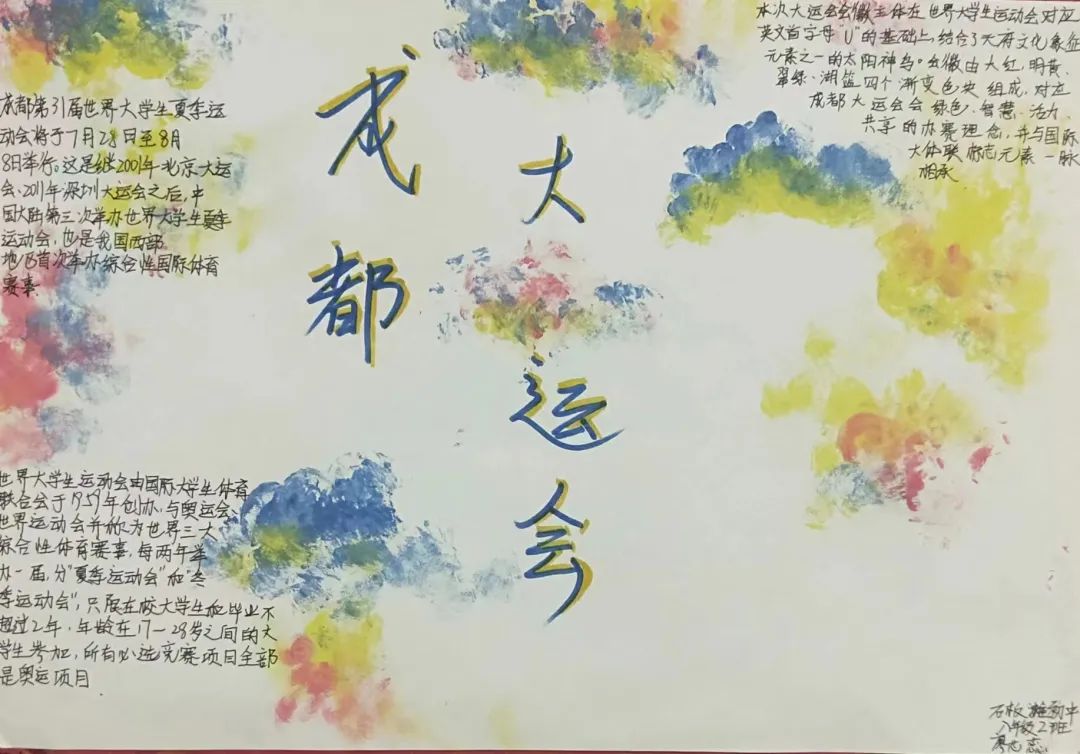 成都
大运会
成都第31届世界大学生夏季运
动会将于7月28日至8月
8日举行。这是继2001年北京大运
会、2011年深圳大运会之后,中
国大陆第三次举办世界大学生夏季
运动会,也是我国西部
地区首次举办综合性国际体育
赛事
世界大学生运动会由国际大学生体育
联合会于1959年创办,与奥运会、
世界运动会并称为世界三大
综合性体育赛事,每两年举
办一届,分"夏季运动会"和"冬
季运动会",只限在校大学生和毕业不
超过2年,年龄在17-28岁之间的大
学生参加,所有必选竞赛项目全部
是奥运项目
本次大运会会徽主体在世界大学生运动会对应
英文首字母"U"的基础上,结合了天府文化象征
元素之一的太阳神鸟。会徽由大红、明黄、
翠绿、湖蓝四个渐变色块组成,对应
成都大运会会绿色、智慧、活力、
共享的办赛理念,并与国际
大体联标志元素一脉
相承
石板滩初中
八年级2班